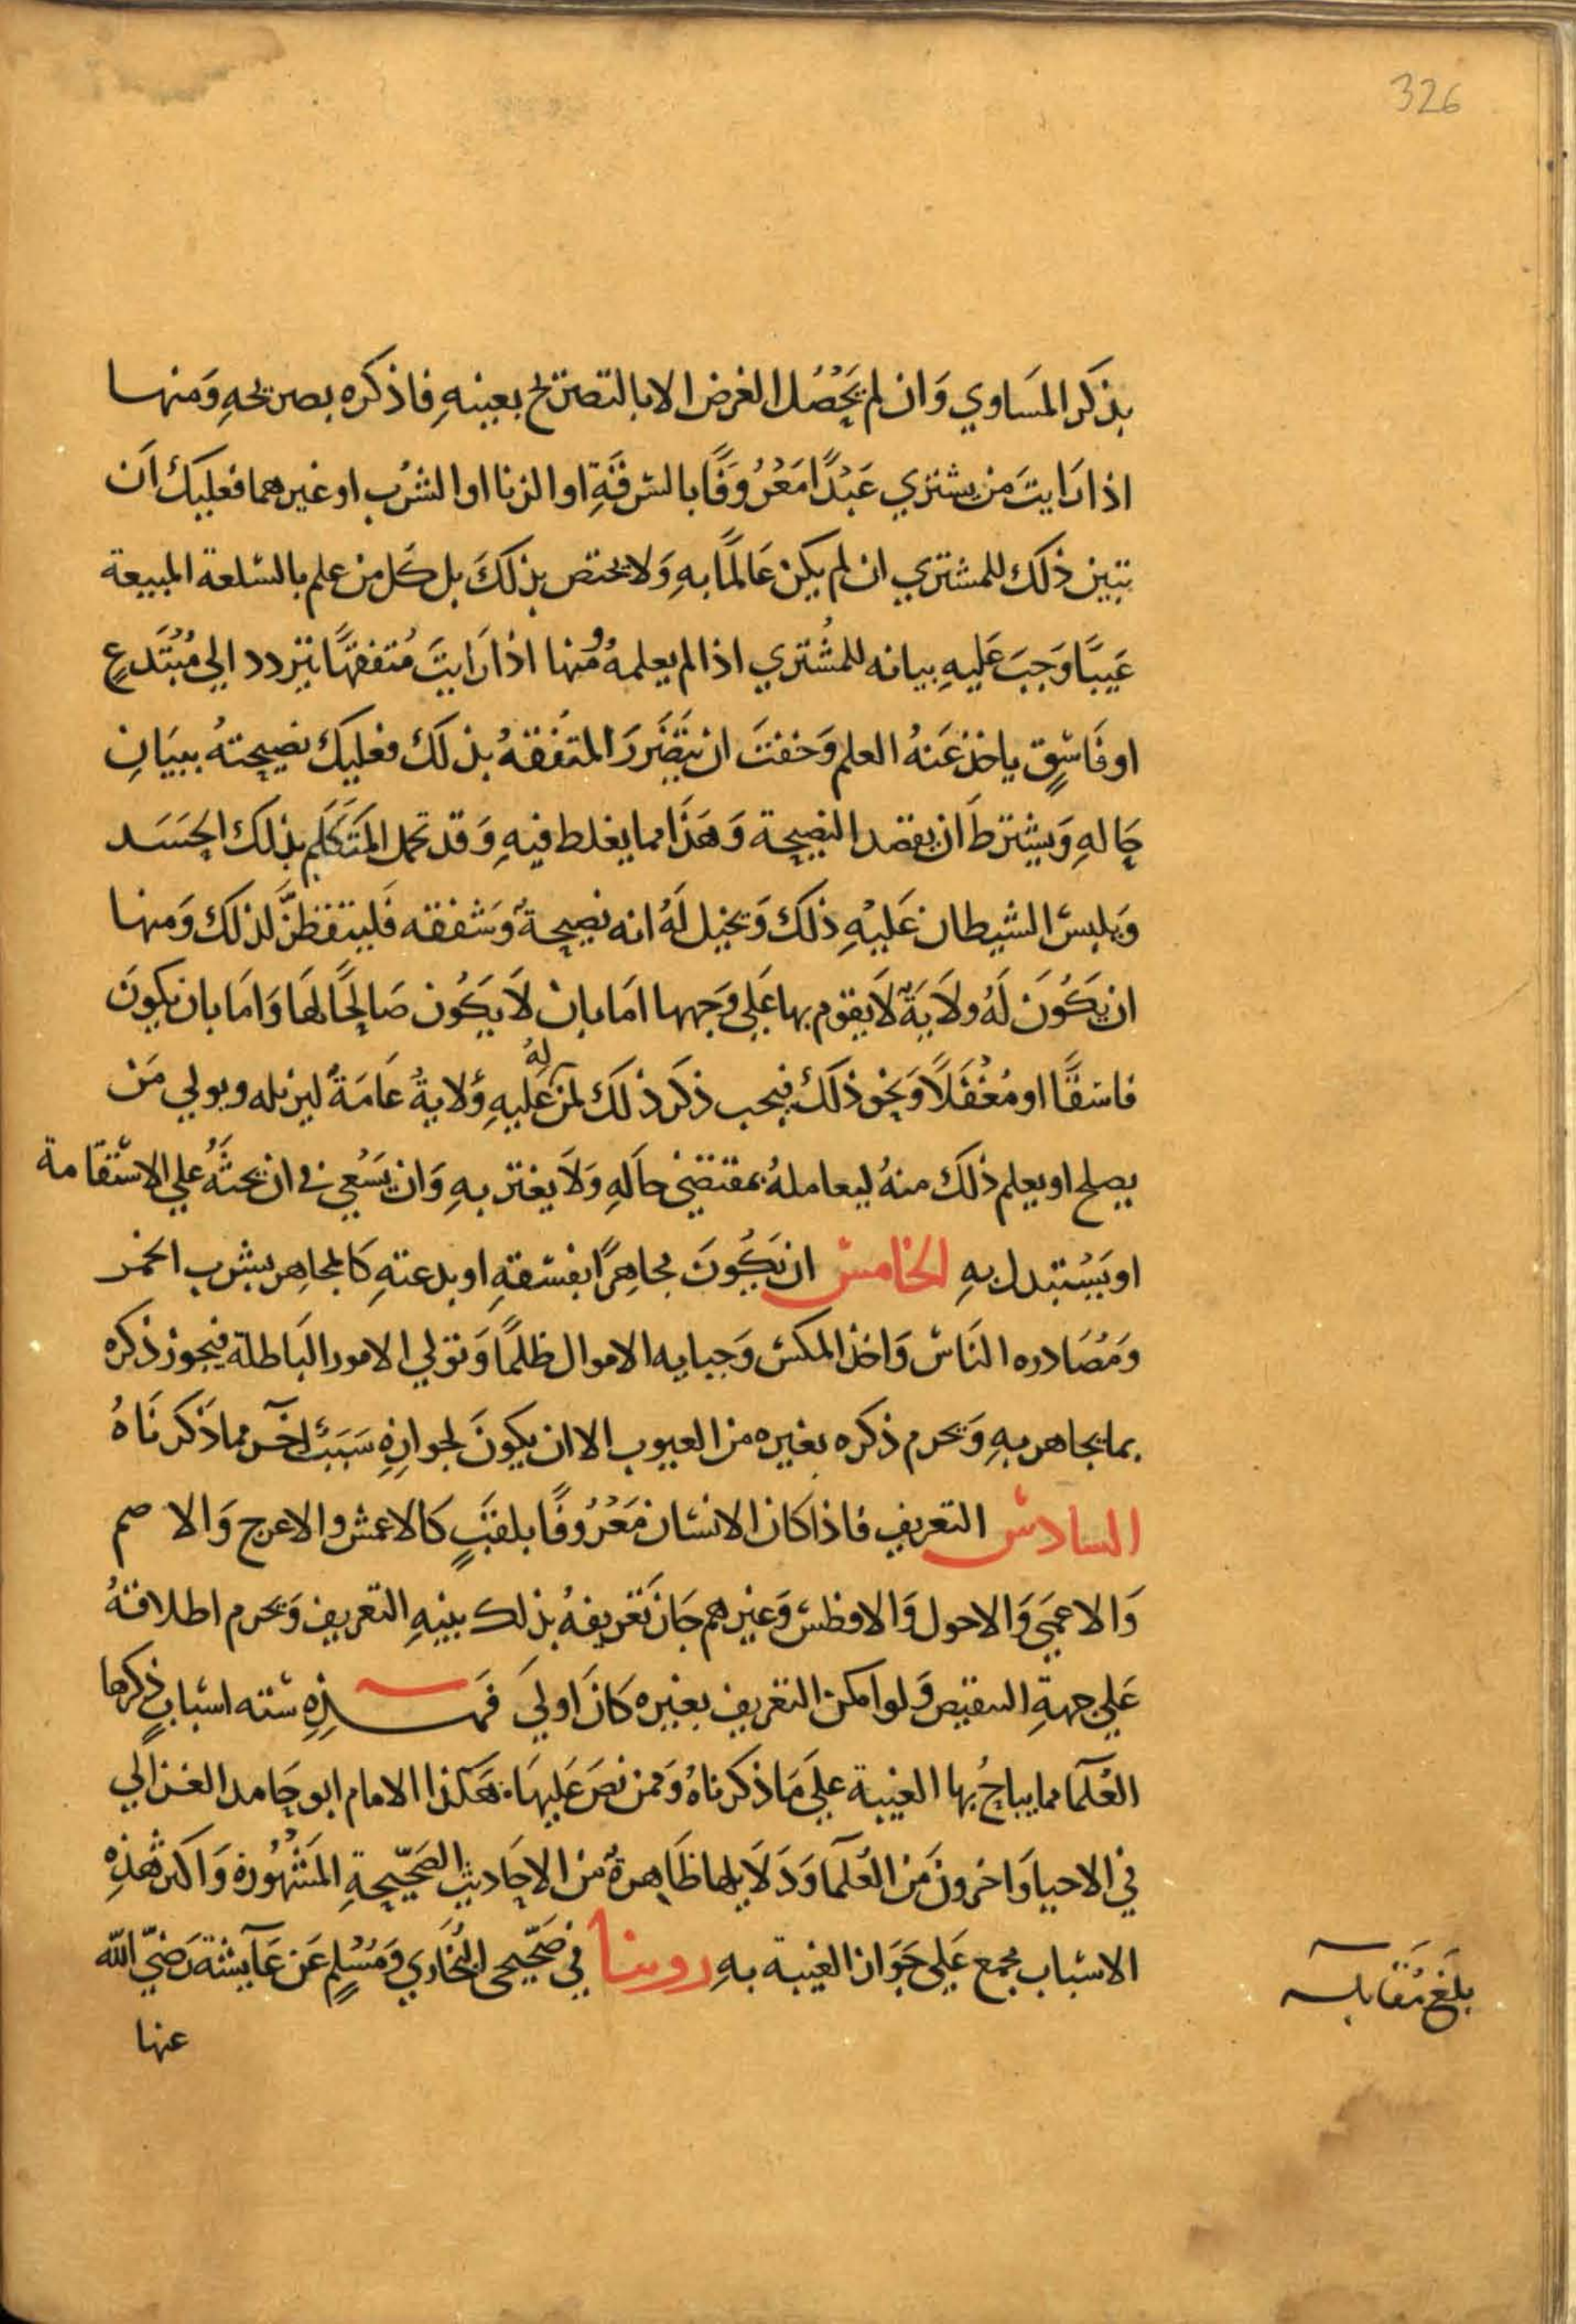 326
بذكر المَساوي وَان لم يَحْصُل الغرض الا بالتصريح بعينهِ فاذكره بصريحهِ وَمنها
اذا رَايتَ من يشتري عَبْدًا مَعْرُوفًا بالسرقةِ او الزنا او الشرُب او غيرهما فعليك اَن
تبين ذلك للمشتري ان لم يكن عَالمًا بهِ وَلا يختص بذلكَ بل كل من علم بالسلعة المبيعة
عَيبًا وَجبَ عَليهِ بيانه للمُشتري اذا لم يعلمهُ ومنها اذا رَايتَ مُتفقهًا يتردد الي مُبْتَدعٍ
او فَاسِقٍ ياخذ عَنهُ العلم وَخفتَ ان يتَضَررَ المتفقهُ بذلك فعليك نصيحتهُ ببيَانِ
حَالهِ وَيشترطَ ان يقصد النصيحة وَهَذَا مما يغلط فيهِ وَقد تحمل المَتَكَلم بذلك الحَسَد
وَيلبس الشيطان عَليْهِ ذلكَ وَيخيل لَهُ انه نصيحةٌ وَشفقه فَليتفطنَّ لذلك وَمنها
ان يَكُونَ لَهُ ولَايَةٌ لَا يقوم بها عَلي وَجهها امَا بان لَا يَكُون صَالحًا لهَا وَامَا بان يكونَ
فاسقًا او مُغْفَلًا وَنحْو ذلكَ فيجب ذكر ذلك لمن لهُ عَليهِ وُلايةُ عَامَةٌ ليزيله ويولي مَن
يصلح او يعلم ذلكَ منهُ ليعاملهُ بمقتضي حَالهِ وَلَا يغتر بهِ وَان يَسْعي في ان يحثَهُ علي الاستقامة
او يَسْتبدل بهِ الخامس ان يَكُونَ مجاهِرًا بفسقهِ او بدعتهِ كَالمجاهر بشرب الخمر
وَمُصَادره النَاس وَاخذ المكس وَجبايه الاموال ظلمًا وَتولي الامور البَاطلة فيجوز ذكره
بما يجاهر بهِ وَيحرم ذكره بغيره من العيوب الا ان يكونَ لجوازِهِ سَبَبٌ اخَر مما ذَكرنَاهُ
السادس التعريف فاذا كَان الانسَان مَعْرُوفًا بلقبٍ كَالاعمش والاعرج وَالاصم
وَالاعمَي وَالاحول وَالافطس وَغيرهم جَاز تَعْريفهُ بذلك بنيهِ التعريف وَيحرم اطلاقهُ
عَلي جهةِ التنقيص وَلو امكن التعريف بغيره كَانَ اوليَ فَهـــذِهِ سته اسبابٍ ذكرها
العُلَمَآ مما يباحُ بها الغيبة عليَ مَا ذكرناهُ وَممن نصَ عَليهَا هَكذا الامام ابو حَامد الغزالي
في الاحيا وَاخرونَ مَن العُلمَآ وَدَلَايلها ظَاهرةٌ من الاحَاديث الصَحيحةِ المَشْهُورة وَاكثر هَذِهِ
الاسباب مجمع عَلي جَوَاز الغيبة بهِ روينا في صَحيحي البُخَاري وَمُسْلمٍ عَن عَآيشة رَضيَّ الله
عنها
بلَغ مقَابله